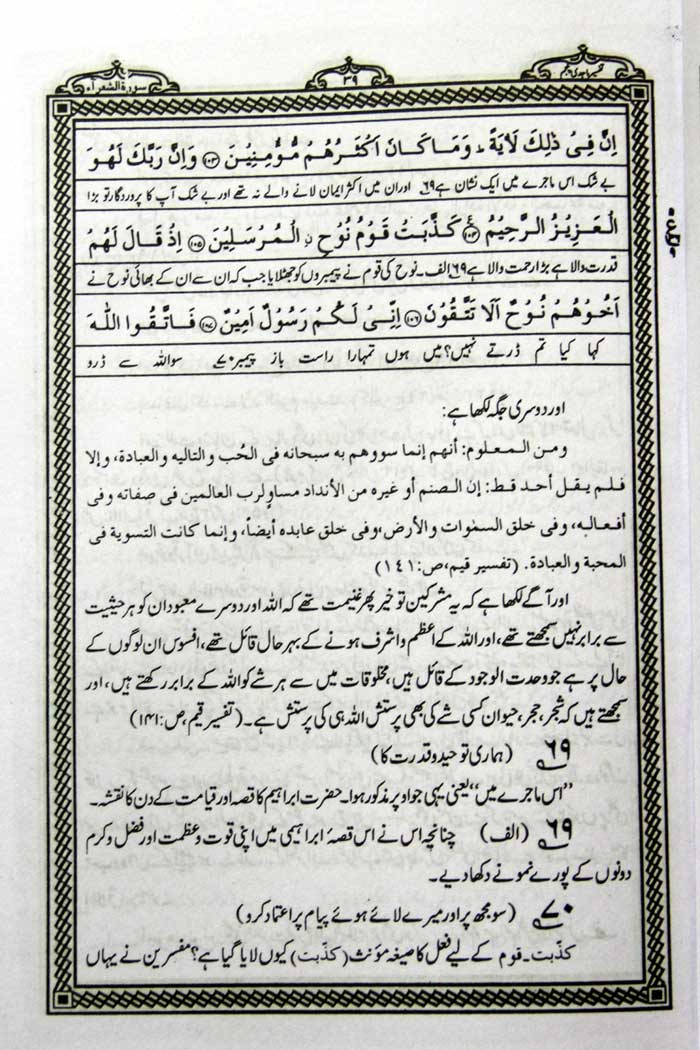 تفسیر ماجدی پنجم
۳۹
سورة الشعرآء
اِنَّ فِیْ ذٰلِكَ لَاٰیَةً ؕ وَمَا كَانَ اَكْثَرُهُمْ مُّؤْمِنِیْنَ ﴿۱۰۳﴾ وَاِنَّ رَبَّكَ لَهُوَ
بے شک اس ماجرے میں ایک نشان ہے ۶۹ اور ان میں اکثر ایمان لانے والے نہ تھے اور بے شک آپ کا پروردگار تو بڑا
الْعَزِیْزُ الرَّحِیْمُ ﴿۱۰۴﴾ كَذَّبَتْ قَوْمُ نُوْحِ ِ۟الْمُرْسَلِیْنَ ﴿۱۰۵﴾ اِذْ قَالَ لَهُمْ
قدرت والا ہے بڑا رحمت والا ہے ۶۹ الف۔ نوح کی قوم نے پیمبروں کو جھٹلایا جب کہ ان سے ان کے بھائی نوح نے
اَخُوْهُمْ نُوْحٌ اَلَا تَتَّقُوْنَ ﴿۱۰۶﴾ اِنِّیْ لَكُمْ رَسُوْلٌ اَمِیْنٌ ﴿۱۰۷﴾ فَاتَّقُوا اللّٰهَ
کہا کیا تم ڈرتے نہیں؟ میں ہوں تمہارا راست باز پیمبر ۷۰ سو اللہ سے ڈرو
اور دوسری جگہ لکھا ہے:
ومن المعلوم: أنهم إنما سووهم به سبحانه فی الحُب والتالیه والعبادة، وإلا
فلم یقل أحد قط: إن الصنم أو غیره من الأنداد مساوٍ لرب العالمین فی صفاته وفی
أفعاله، وفی خلق السمٰوات والأرض، وفی خلق عابده أیضاً، وإنما کانت التسویة فی
المحبة والعبادة. (تفسیر قیم، ص:۱۴۱)
اور آگے لکھا ہے کہ یہ مشرکین تو خیر پھر غنیمت تھے کہ اللہ اور دوسرے معبودان کو ہر حیثیت
سے برابر نہیں سمجھتے تھے، اور اللہ کے اعظم و اشرف ہونے کے بہر حال قائل تھے، افسوس ان لوگوں کے
حال پر ہے جو وحدت الوجود کے قائل ہیں، مخلوقات میں سے ہر شے کو اللہ کے برابر رکھتے ہیں، اور
سمجھتے ہیں کہ شجر، حجر، حیوان کسی شے کی بھی پرستش اللہ ہی کی پرستش ہے۔ (تفسیر قیم، ص:۱۴۱)
۶۹ (ہماری توحید و قدرت کا)
’’اس ماجرے میں‘‘ یعنی یہی جو اوپر مذکور ہوا۔ حضرت ابراہیم کا قصہ اور قیامت کے دن کا نقشہ۔
۶۹ (الف) چنانچہ اس نے اس قصۂ ابراہیمی میں اپنی قوت و عظمت اور فضل و کرم
دونوں کے پورے نمونے دکھا دیے۔
۷۰ (سو مجھ پر اور میرے لائے ہوئے پیام پر اعتماد کرو)
کذبت۔ قوم کے لیے فعل کا صیغہ مؤنث (کذبت) کیوں لایا گیا ہے؟ مفسرین نے یہاں